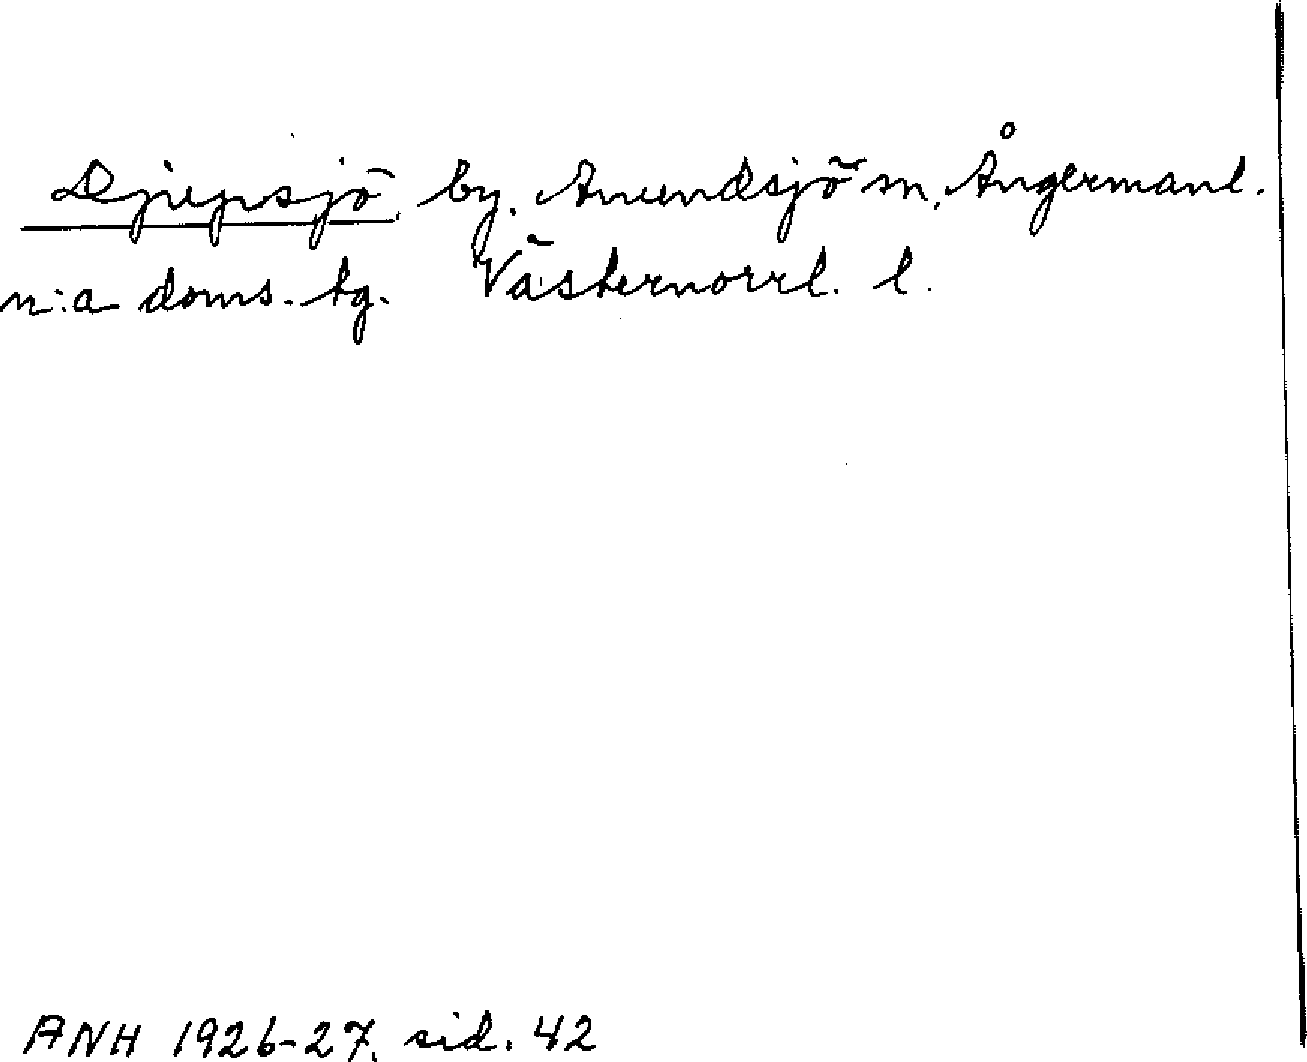 Djupsjö, by. Anundsjö sn, Ångermanl.
n:a doms. tg. Västernorrl. l.
ANH 1926-27, sid. 42